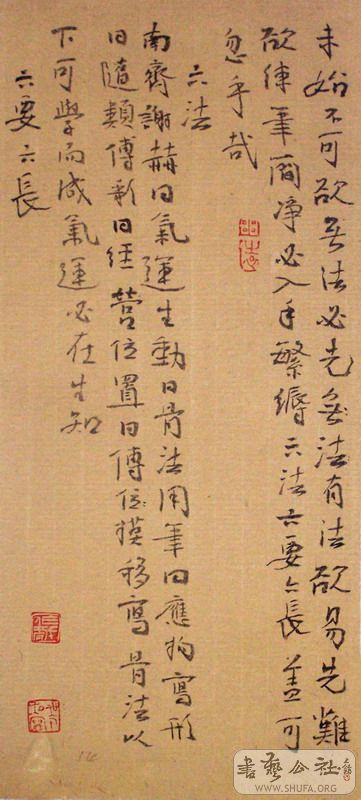 未始不可欲無法必先無法有法欲易先難
欲練筆簡淨必入手繁縟六法六要六長蓋可
忽乎哉
六法
南齊謝赫曰氣運生動曰骨法用筆曰應物寫形
曰隨類傅彩曰經營位置曰傳位模移寫骨法以
下可學而成氣運必在生知
六要六長
書藝公社
WWW.SHUFA.ORG